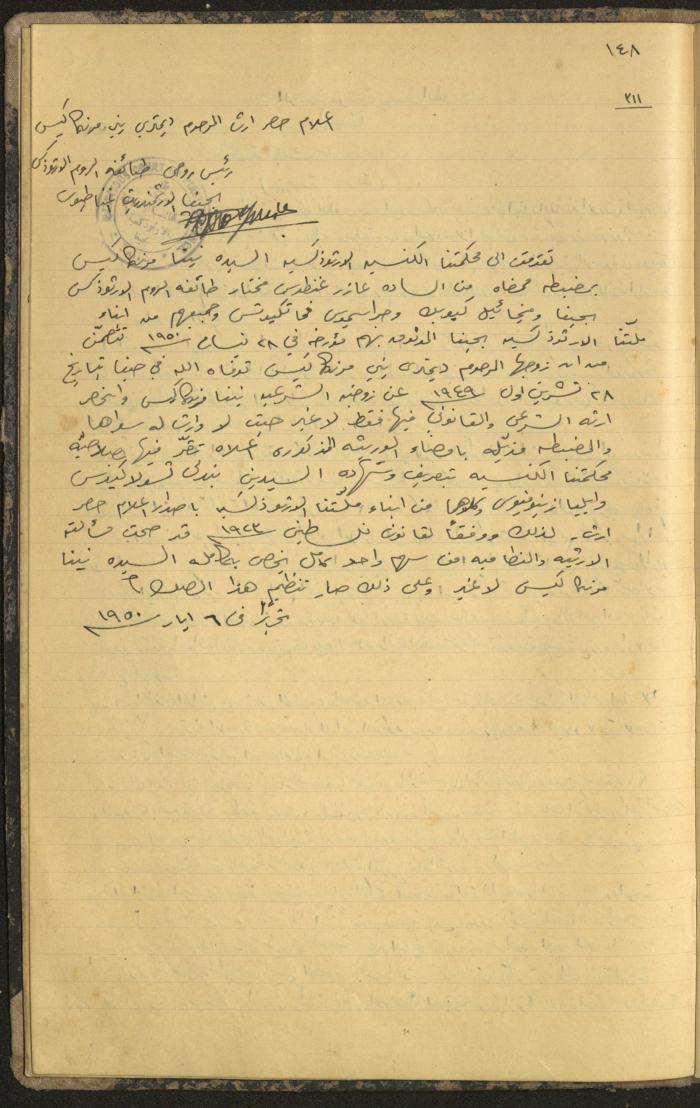 ١٤٨
٣١١
اعلام حصر ارث المرحوم ديمتري يني مرنكاكيس
رئيس روحي طائفة الروم الارثوذكس
بحيفا الارشمندريت اغناطيوس
تقدمت الى محكمتنا الكنسيه الارثوذكسيه السيده نينا مرنكاكيس
بمضبطه ممضاه من الساده عازر غنطوس مختار طائفه الروم الارثوذكس
بحيفا وميخائيل كيوبك وجراسيموس وجميعهم من ابناء
ملتنا الارثوذكسيه بحيفا الموثوق بهم مؤرخه في ٢٨ نيسان ١٩٥٠ تتضمن
من ان زوجها المرحوم ديمتري يني مرنكاكيس توفاه الله في حيفا بتاريخ
٢٨ تشرين اول ١٩٤٩ عن زوجته الشرعيه نينا مرنكاكيس وانحصر
ارثه الشرعي والقانوني فيها فقط لا غير حيث لا وارث له سواها
والمضبطه مذيله بامضاء الوريثه المذكوره اعلاه تقر فيها بصلاحية
محكمتنا الكنسيه بتعريف وشهاده السيدين بندلي
وايليا وكلاهما من ابناء ملتنا الارثوذكسيه باصدار اعلام حصر
ارث. لذلك ووفقاً لقانون فلسطين ١٩٢٣ قد صحت مسألته
الارثيه والنظاميه من سهم واحد يخص بكامله السيده نينا
مرنكاكيس لا غير وعلى ذلك صار تنظيم هذا الصك
تحريراً في ٦ ايار ١٩٥٠